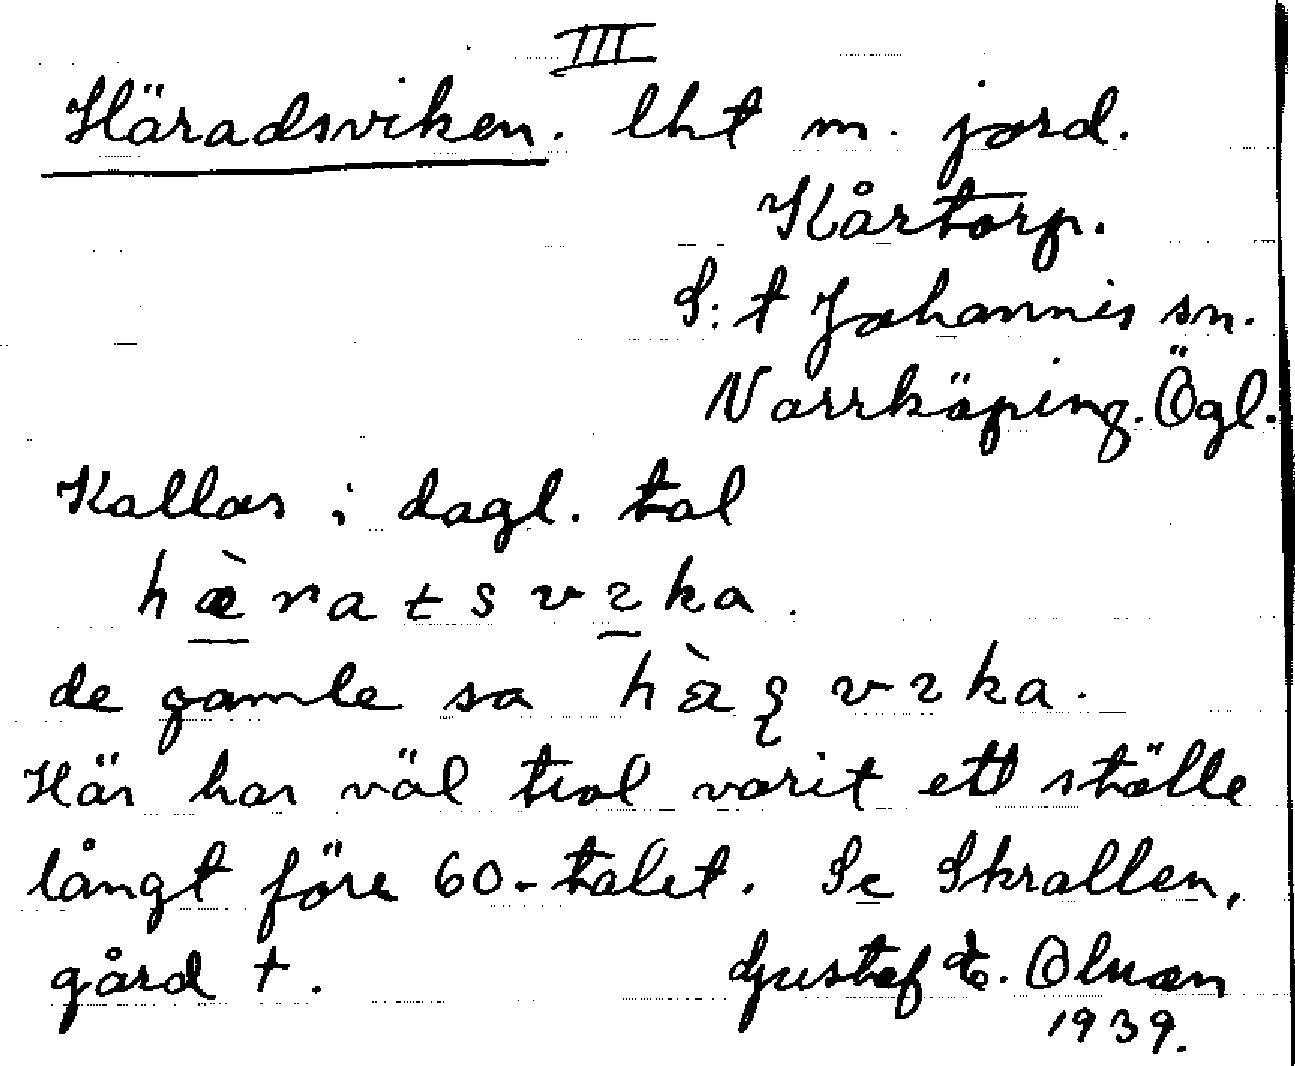 III
Häradsviken. lht m. jord.
Kårtorp.
S:t Johannis sn.
Norrköping. Ögl.
Kallas i dagl. tal
hæ̀ratsvɩka.
de gamle sa hæ̀ʂvɩka.
Här har väl trol varit ett ställe
långt före 60-talet. Se Skrallen,
gård †.
Gustaf E. Olson
1939.